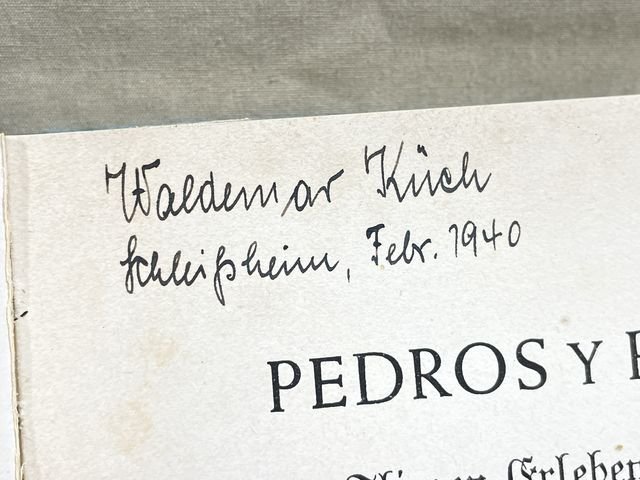 Waldemar Küch
Schleißheim, Febr. 1940
PEDROS Y
Erleben